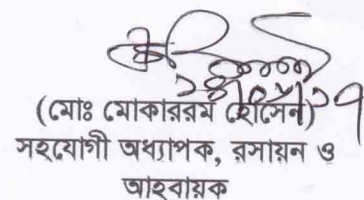 (মোঃ মোকাররম হোসেন)
সহযোগী অধ্যাপক, রসায়ন ও
আহবায়ক